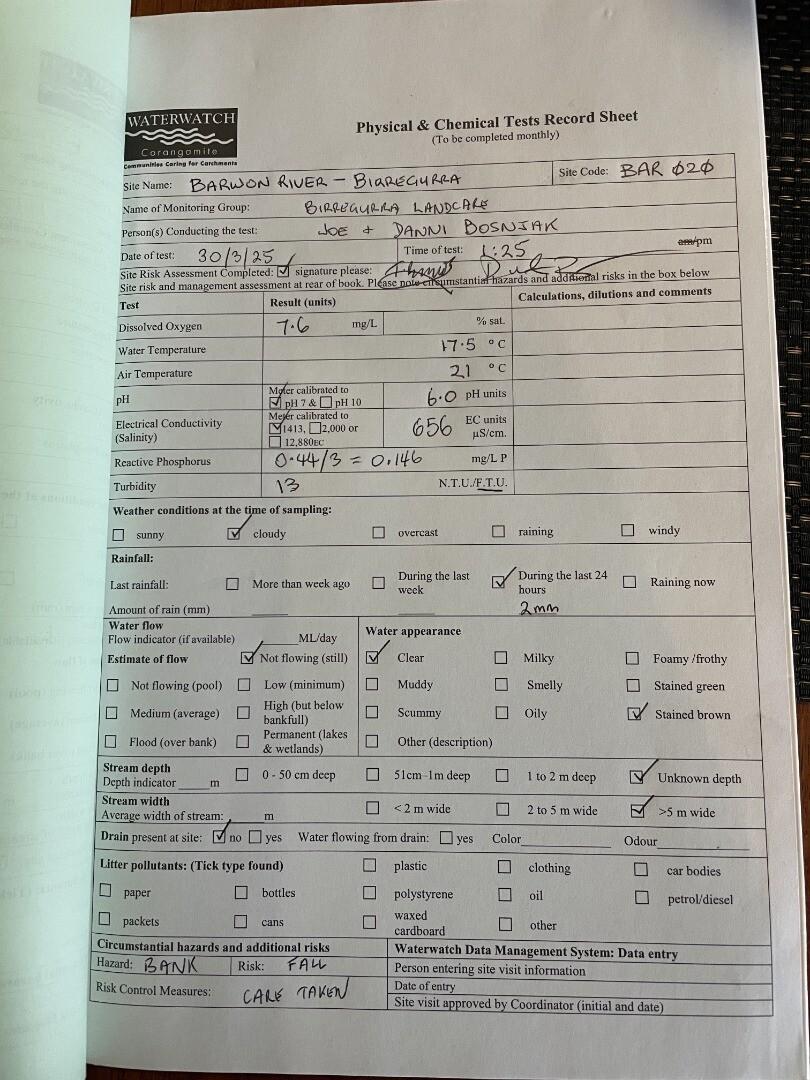 WATERWATCH
Corangamite
Communities Caring for Catchments
Physical & Chemical Tests Record Sheet
(To be completed monthly)
Site Name: BARWON RIVER - BIRREGURRA Site Code: BAR 020
Name of Monitoring Group: BIRREGURRA LANDCARE
Person(s) Conducting the test: JOE + DANNI BOSNJAK
Date of test: 30/3/25 Time of test: 1:25 am/pm
Site Risk Assessment Completed: signature please:
Site risk and management assessment at rear of book. Please note circumstantial hazards and additional risks in the box below
Test Result (units) Calculations, dilutions and comments
Dissolved Oxygen 7.6 mg/L % sat.
Water Temperature 17.5 °C
Air Temperature 21 °C
pH Meter calibrated to pH 7 & pH 10 6.0 pH units
Electrical Conductivity (Salinity) Meter calibrated to 1413, 2,000 or 12,880EC 656 EC units µS/cm.
Reactive Phosphorus 0.44/3 = 0.146 mg/L P
Turbidity 13 N.T.U./F.T.U.
Weather conditions at the time of sampling:
sunny cloudy overcast raining windy
Rainfall:
Last rainfall: More than week ago During the last week During the last 24 hours Raining now
Amount of rain (mm) 2mm
Water flow Water appearance
Flow indicator (if available) ML/day
Estimate of flow Not flowing (still) Clear Milky Foamy /frothy
Not flowing (pool) Low (minimum) Muddy Smelly Stained green
Medium (average) High (but below bankfull) Scummy Oily Stained brown
Flood (over bank) Permanent (lakes & wetlands) Other (description)
Stream depth
Depth indicator m 0 - 50 cm deep 51cm-1m deep 1 to 2 m deep Unknown depth
Stream width
Average width of stream: m < 2 m wide 2 to 5 m wide >5 m wide
Drain present at site: no yes Water flowing from drain: yes Color Odour
Litter pollutants: (Tick type found) plastic clothing car bodies
paper bottles polystyrene oil petrol/diesel
packets cans waxed cardboard other
Circumstantial hazards and additional risks Waterwatch Data Management System: Data entry
Hazard: BANK Risk: FALL Person entering site visit information
Risk Control Measures: CARE TAKEN Date of entry
Site visit approved by Coordinator (initial and date)